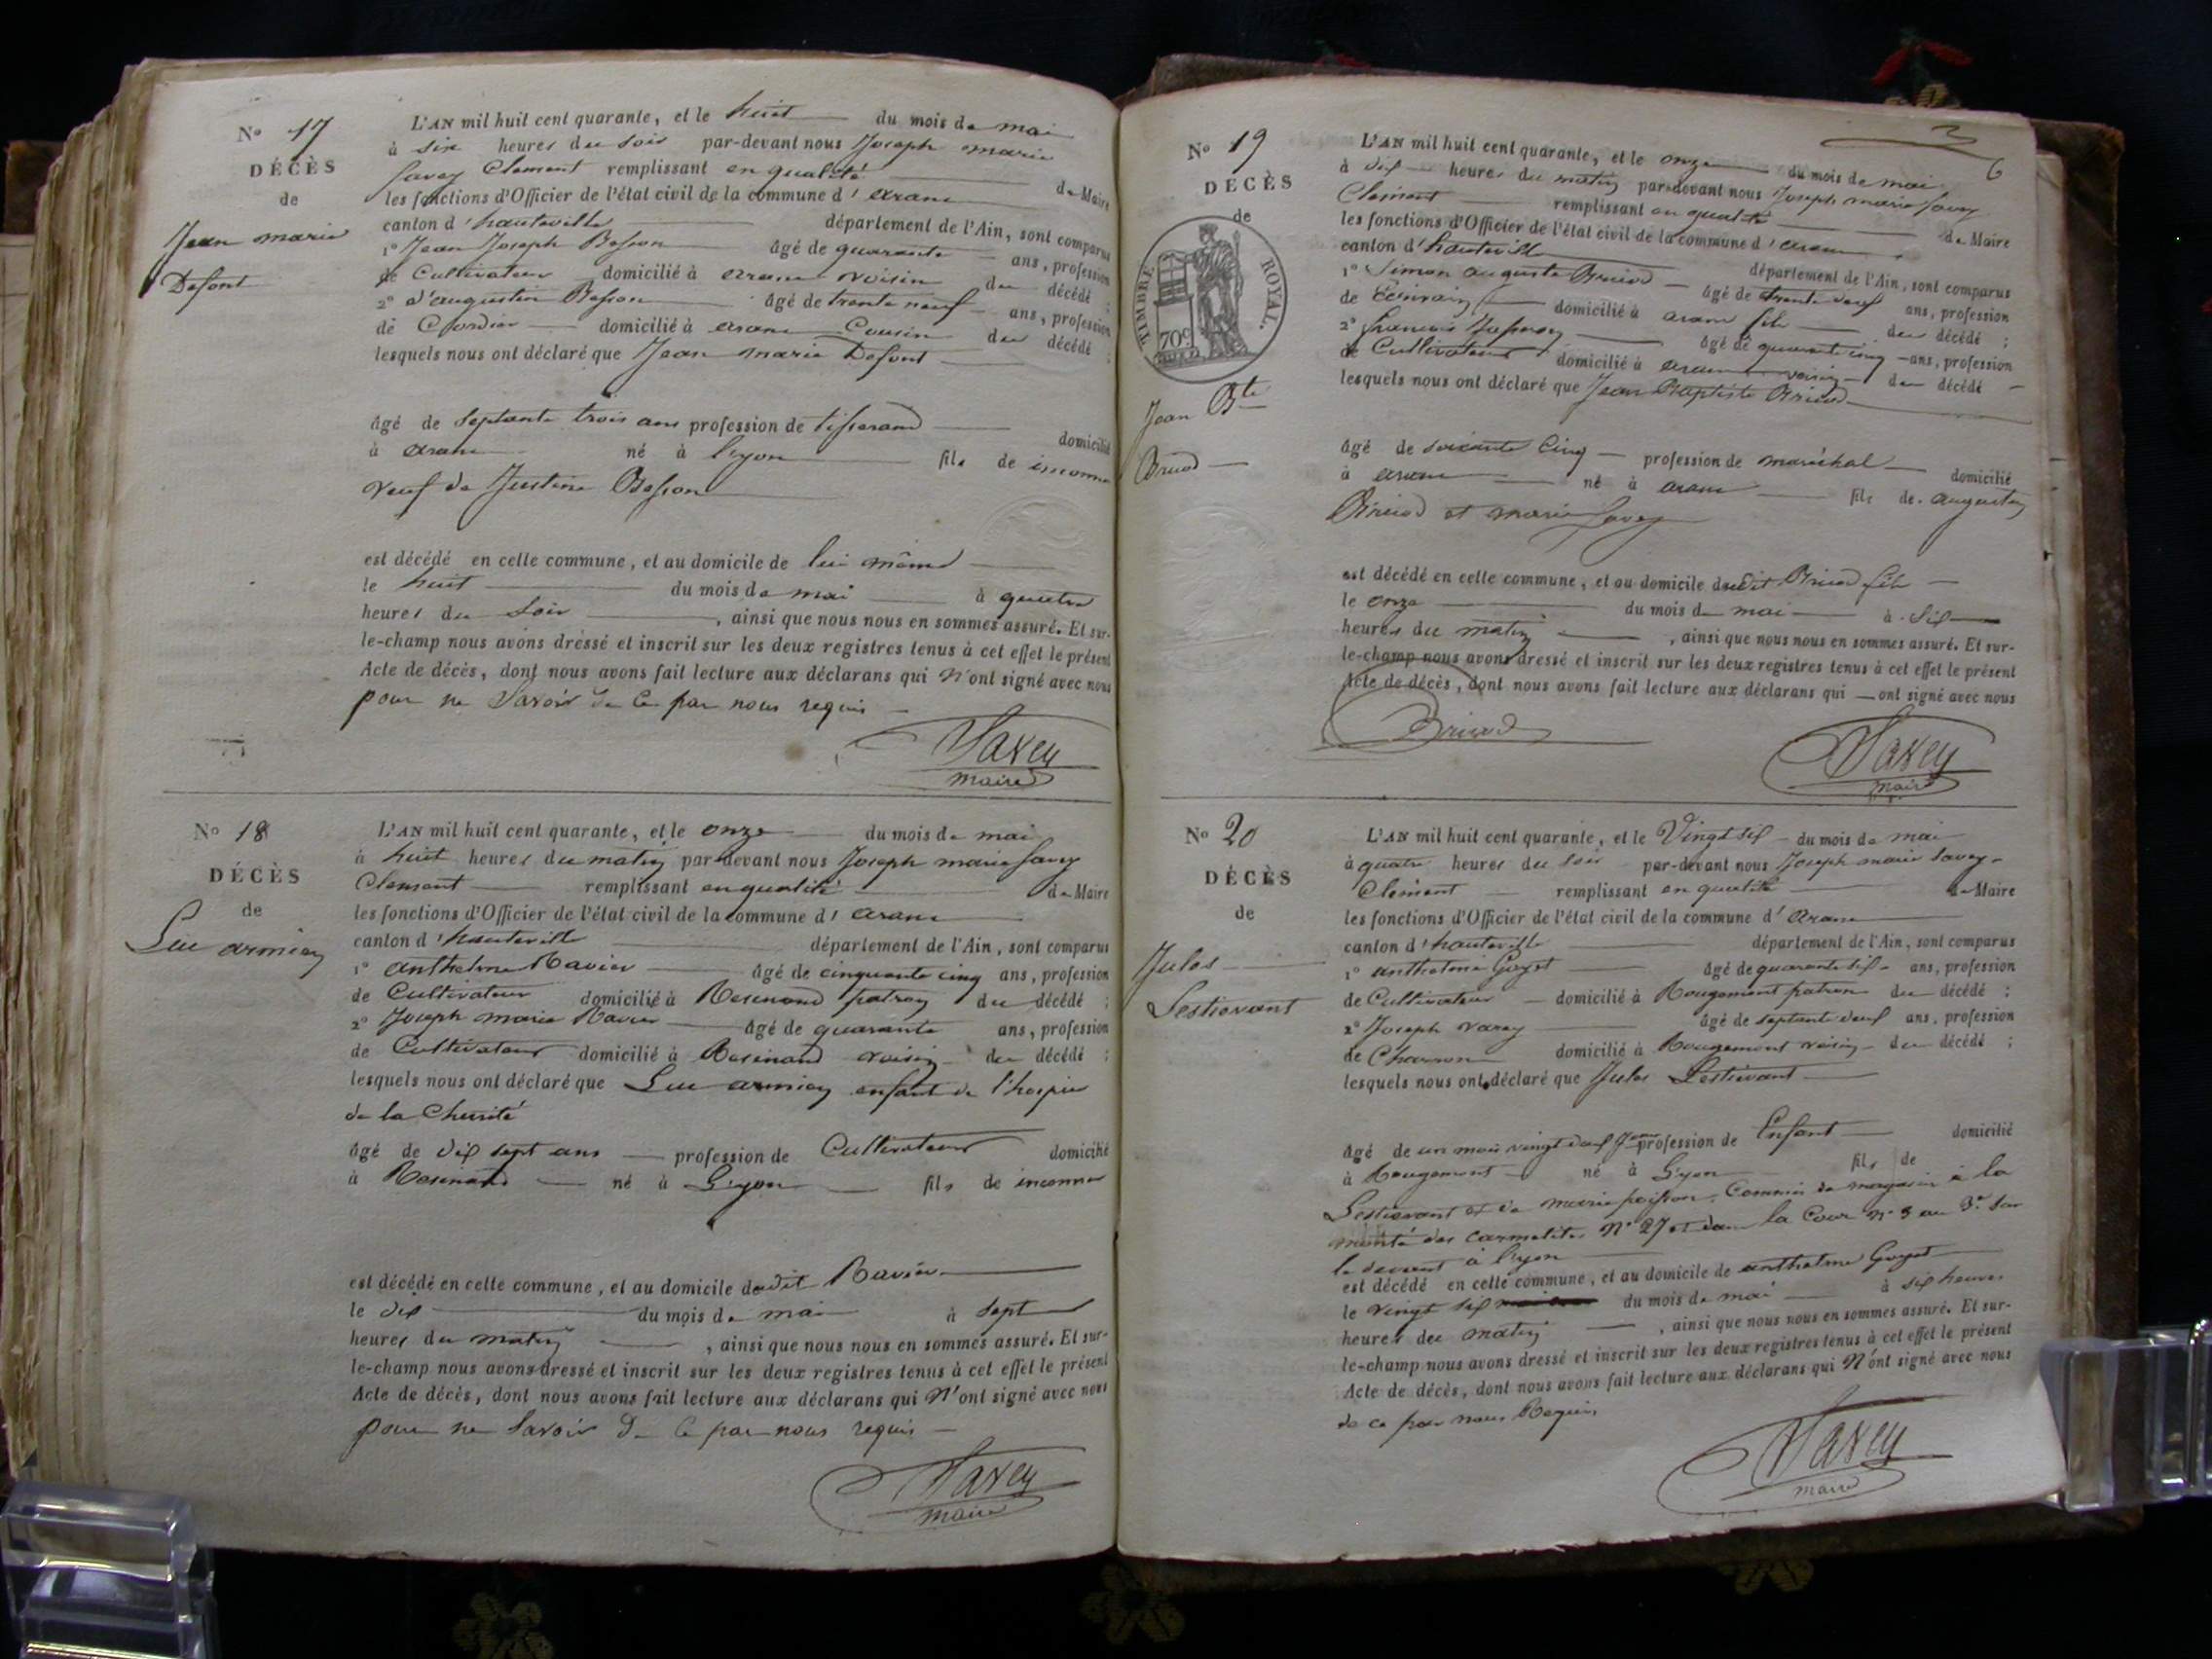 No 17
DÉCÈS
de
Jean marie
Dafont
L'AN mil huit cent quarante, et le huit du mois de mai
à six heures du soir par-devant nous Joseph marie
Savey Clement remplissant en qualité de Maire
les fonctions d'Officier de l'état civil de la commune d'aranc
canton d'hauteville département de l'Ain, sont comparus
1° Jean Joseph Besson âgé de quarante ans, profession
de Cultivateur domicilié à aranc voisin du décédé ;
2° d'augustin Besson âgé de trente neuf ans, profession
de Cordier domicilié à aranc Cousin du décédé ;
lesquels nous ont déclaré que Jean marie Dafont
âgé de septante trois ans profession de tisserand domicilié
à aranc né à Lyon fils de inconnu
veuf de Justine Besson
est décédé en cette commune, et au domicile de lui même
le huit du mois de mai à quatre
heures du soir , ainsi que nous nous en sommes assuré. Et sur-
le-champ nous avons dressé et inscrit sur les deux registres tenus à cet effet le présent
Acte de décès, dont nous avons fait lecture aux déclarans qui n'ont signé avec nous
pour ne Savoir de Ce par nous requis
Savey
maire
No 18
DÉCÈS
de
Luc armien
L'AN mil huit cent quarante, et le onze du mois de mai
à huit heures du matin par-devant nous Joseph marie Savey
Clement remplissant en qualité de Maire
les fonctions d'Officier de l'état civil de la commune d'aranc
canton d'hauteville département de l'Ain, sont comparus
1° anthelme Ravier âgé de cinquante cinq ans, profession
de Cultivateur domicilié à Resinand patron du décédé ;
2° Joseph marie Ravier âgé de quarante ans, profession
de Cultivateur domicilié à Resinand voisin du décédé ;
lesquels nous ont déclaré que Luc armien enfant de l'hospice
de la Charité
âgé de dix sept ans profession de Cultivateur domicilié
à Resinand né à Lyon fils de inconnu
est décédé en cette commune, et au domicile dudit Ravier
le dix du mois de mai à sept
heures du matin , ainsi que nous nous en sommes assuré. Et sur-
le-champ nous avons dressé et inscrit sur les deux registres tenus à cet effet le présent
Acte de décès, dont nous avons fait lecture aux déclarans qui N'ont signé avec nous
pour ne Savoir De Ce par nous requis
Savey
maire
3
6
No 19
DÉCÈS
de
TIMBRE ROYAL.
70c
Jean Bte
Briod
L'AN mil huit cent quarante, et le onze du mois de mai
à dix heures du matin par-devant nous Joseph marie Savey
Clement remplissant en qualité de Maire
les fonctions d'Officier de l'état civil de la commune d'aranc
canton d'hauteville département de l'Ain, sont comparus
1° Simon auguste Briod âgé de trente deux ans, profession
de Ecrivain domicilié à aranc fils du décédé ;
2° francois âgé de quarante cinq ans, profession
de Cultivateur domicilié à aranc voisin du décédé
lesquels nous ont déclaré que Jean Baptiste Briod
âgé de soixante Cinq profession de maréchal domicilié
à aranc né à aranc fils de augustin
Briod et marie Savey
est décédé en cette commune, et au domicile dudit Briod fils
le onze du mois de mai à six
heures du matin , ainsi que nous nous en sommes assuré. Et sur-
le-champ nous avons dressé et inscrit sur les deux registres tenus à cet effet le présent
Acte de décès, dont nous avons fait lecture aux déclarans qui ont signé avec nous
Briod
Savey
maire
No 20
DÉCÈS
de
Jules
Lestievant
L'AN mil huit cent quarante, et le Vingt six du mois de mai
à quatre heures du soir par-devant nous Joseph marie Savey
Clement remplissant en qualité de Maire
les fonctions d'Officier de l'état civil de la commune d'Aranc
canton d'hauteville département de l'Ain, sont comparus
1° anthelme Goyet âgé de quarante six ans, profession
de Cultivateur domicilié à Rougemont patron du décédé ;
2° Joseph varey âgé de septante deux ans, profession
de Charron domicilié à Rougemont voisin du décédé ;
lesquels nous ont déclaré que Jules Lestievant
âgé de un mois vingt deux jours profession de Enfant domicilié
à Rougemont né à Lyon fils de
Lestievant et de marie poisson. Commis de magasin à la
monté des carmelites N° 27 et dans la Cour n° 9 au 3e Sur
le devant à Lyon
est décédé en cette commune, et au domicile de anthelme Goyet
le vingt six du mois de mai à six heures
heures du matin , ainsi que nous nous en sommes assuré. Et sur-
le-champ nous avons dressé et inscrit sur les deux registres tenus à cet effet le présent
Acte de décès, dont nous avons fait lecture aux déclarans qui N'ont signé avec nous
de ce par nous Requis
Savey
maire